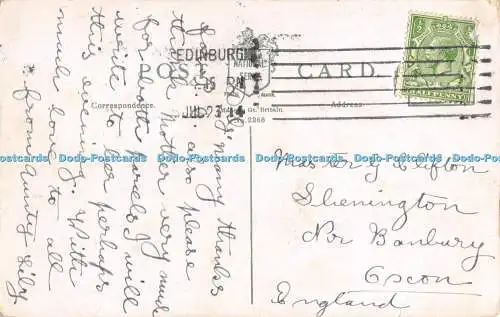 EDINBURGH
NATIONAL
POST CARD
15 PM
JUL 23 14
HALFPENNY
Correspondence.
Address.
Gt. Britain.
2268
many thanks
also please
thank Mother very much
for
write to her perhaps
this evening. With
much love to all
from Aunty Lily
Master J Clifton
Shenington
Nor Banbury
Oxon
England
Dodo-Postcards Dodo-Postcards Dodo-Postcards Dodo-Postcards Dodo-Postcards Dodo-Postcards